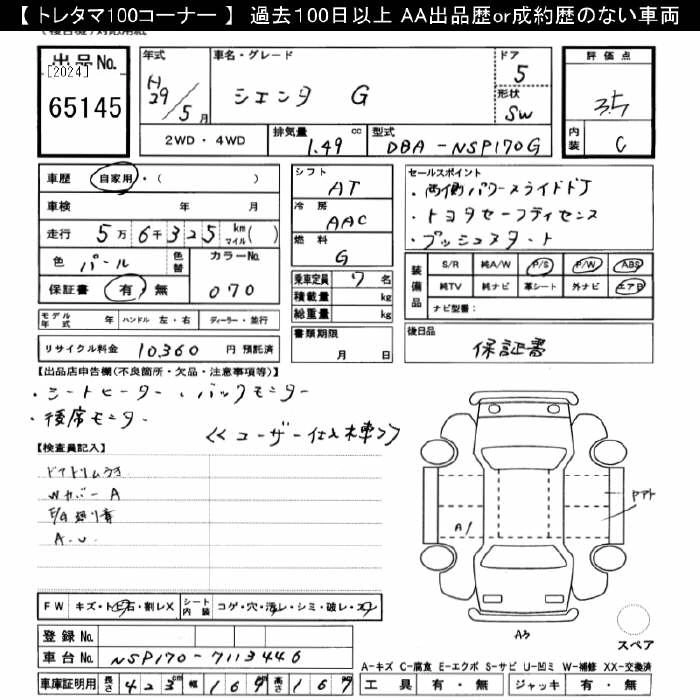 【 トレタマ100コーナー 】 過去100日以上 AA出品歴or成約歴のない車両
出品No.
[2024]
65145
年式
H29/5月
車名・グレード
シエンタ G
ドア
5
形状
SW
評価点
3.5
内装
C
2WD・4WD
排気量
1.49 cc
型式
DBA-NSP170G
車歴 自家用・( )
車検 年 月
走行 5万6千325 km マイル( )
色 パール 色替
カラーNo.
070
保証書 有・無
シフト
AT
冷房
AAC
燃料
G
乗車定員 7名
積載量 kg
総重量 kg
セールスポイント
・両側パワースライドドア
・トヨタセーフティセンス
・プッシュスタート
装備品
S/R 純A/W P/S P/W ABS
純TV 純ナビ 革シート 外ナビ エアB
ナビ型番:
モデル年式 年 ハンドル 左・右 ディーラー・並行
リサイクル料金 10,360 円 預託済
書類期限
月 日
後日品
保証書
【出品店申告欄(不良箇所・欠品・注意事項等)】
・シートヒーター ・バックモニター
・後席モニター
<<ユーザー仕入れ車>>
【検査員記入】
ドアトリムうき
Wカバー A
A・U
ドアト
A1
A3
スペア
FW キズ・トビ石・割レX
シート内装 コゲ・穴・汚レ・シミ・破レ・スレ
登録No.
車台No. NSP170-7113446
車庫証明用 長さ 423cm 幅 169cm 高さ 167cm
A-キズ C-腐食 E-エクボ S-サビ U-凹ミ W-補修 XX-交換済
工具 有・無 ジャッキ 有・無